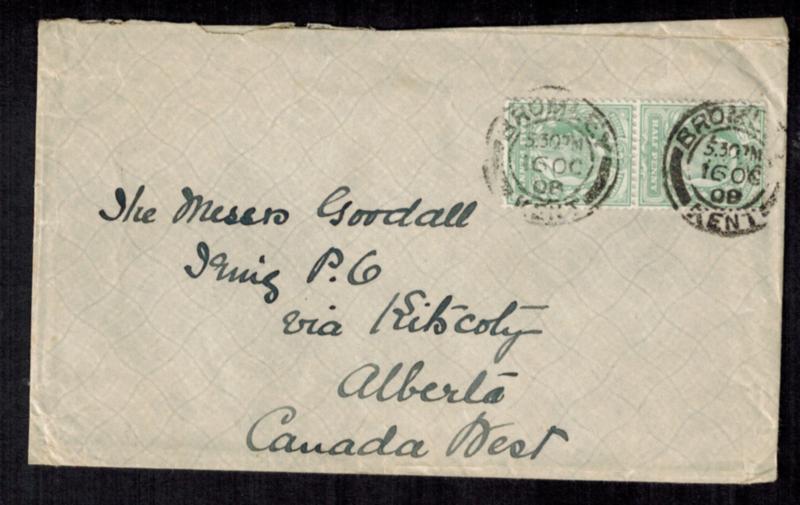 BROMLEY
5.30PM
16 OC
08
KENT
HALF PENNY
BROMLEY
5.30PM
16 OC
08
KENT
The Messrs Goodall
P.O
via Kitscoty
Alberta
Canada West